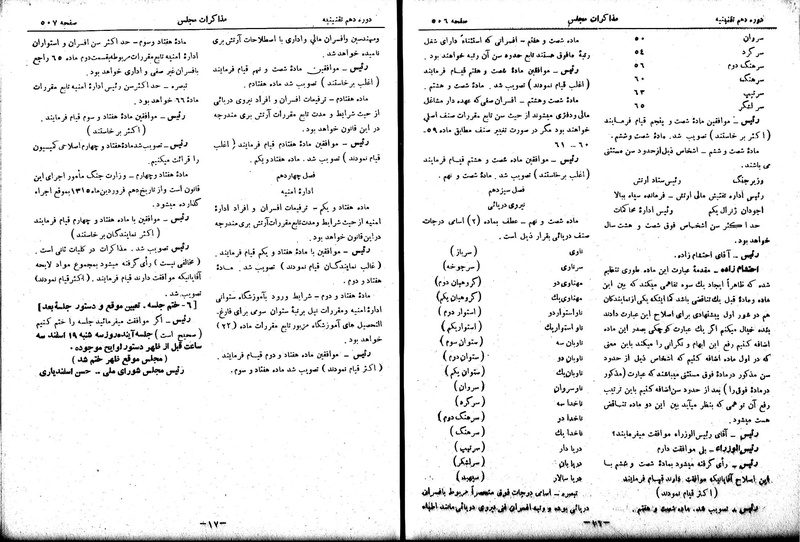 دوره دهم تقنینیه
مذاکرات مجلس
صفحه ۵۰۶
سروان ۵۰
سرگرد ۵۴
سرهنگ دوم ۵۶
سرهنگ ۶۰
سرتیپ ۶۳
سرلشگر ۶۵
رئیس ــ موافقین مادهٔ شصت و پنجم قیام فرمایند
(اکثر برخاستند) تصویب شد. مادهٔ شصت و ششم.
مادهٔ شصت و ششم ــ اشخاص ذیل از حدود سن مستثنی
می باشند.
وزیر جنگ رئیس ستاد ارتش
رئیس اداره تفتیش مالی ارتش ــ فرمانده سپاه ببالا
آجودان ژنرال یکم رئیس ادارهٔ محاکمات
حد اکثر سن اشخاص فوق شصت و هشت سال
خواهد بود.
رئیس ــ آقای احتشام زاده.
احتشام زاده ــ مقدمهٔ عبارت این ماده طوری تنظیم
شده که ظاهراً ایجاد یك سوء تفاهمی میکند که بین این
ماده و مادهٔ قبل یك تناقضی باشد کما اینکه یکی از نمایندگان
هم در شور اول پیشنهادی برای اصلاح این عبارت دادند
بنده خیال میکنم اگر یك عبارت کوچکی بصدر این ماده
اضافه کنیم رفع این ابهام و نگرانی را میکند باین معنی
که در اول ماده اضافه کنیم که اشخاص ذیل از حدود
سن مذکور در مادهٔ فوق مستثنی میباشند که عبارت (مذکور
در مادهٔ فوق را) بعد از حدود سن اضافه کنیم باین ترتیب
رفع آن توهمی که بنظر میآید بین این دو ماده تناقض
هست میشود.
رئیس ــ آقای رئیس الوزراء موافقت میفرمایند؟
رئیس الوزراء ــ بلی موافقت دارم
رئیس ــ رأی گرفته میشود بمادهٔ شصت و ششم با
این اصلاح آقایانیکه موافقت دارند قیام فرمایند
(اکثر قیام نمودند)
رئیس ــ تصویب شد. مادهٔ شصت و هفتم.
مادهٔ شصت و هفتم ــ افسرانی که استثناءً دارای شغل
رتبهٔ مافوق هستند تابع حدود سن آن رتبه خواهند بود.
رئیس ــ موافقین مادهٔ شصت و هفتم قیام فرمایند
(اغلب قیام نمودند) تصویب شد. مادهٔ شصت و هشتم.
مادهٔ شصت وهشتم ــ افسران صفی که عهده دار مشاغل
مالی و دفتری میشوند از حیث سن تابع مقررات صنف اصلی
خواهند بود مگر در صورت تغییر صنف مطابق ماده ۵۹ـ
۶۰ ـ ۶۱
رئیس ــ موافقین مادهٔ شصت و هشتم قیام فرمایند
(اغلب برخاستند) تصویب شد. مادهٔ شصت و نهم.
فصل سیزدهم
نیروی دریائی
ماده شصت و نهم ــ عطف بماده (۲) اسامی درجات
صنف دریائی بقرار ذیل است.
ناوی (سرباز)
سرناوی (سرجوخه)
مهناوی دو (گروهبان دوم)
مهناوی یك (گروهبان یکم)
ناو استوار دو (استوار دوم)
ناو استوار یك (استوار یکم)
ناوبان سه (ستوان سوم)
ناوبان دو (ستوان دوم)
ناوبان یك (ستوان یکم)
ناو سروان (سروان)
ناخدا سه (سرگرد)
ناخدا دو (سرهنگ دوم)
ناخدا یك (سرهنگ)
دریا دار (سرتیپ)
دریا بان (سرلشگر)
دریا سالار (سپهبد)
تبصره ــ اسامی درجات فوق منحصراً مربوط بافسران
دریائی بوده و رتبه افسران فنی نیروی دریائی مانند اطباء
ــ ۱۶ ــ
دوره دهم تقنینیه
مذاکرات مجلس
صفحه ۵۰۷
ومهندسین وافسران مالی و اداری با اصطلاحات ارتش بری
نامیده خواهد شد.
رئیس ــ موافقین مادهٔ شصت و نهم قیام فرمایند
(اغلب برخاستند) تصویب شد مادهٔ هفتادم.
مادهٔ هفتادم ــ ترفیعات افسران و افراد نیروی دریائی
از حیث شرایط و مدت تابع مقررات ارتش بری مندرجه
در این قانون خواهد بود.
رئیس ــ موافقین مادهٔ هفتادم قیام فرمایند (اغلب
قیام نمودند) تصویب شد. مادهٔ هفتاد و یکم.
فصل چهاردهم
ادارهٔ امنیه
ماده هفتاد و یکم ــ ترفیعات افسران و افراد ادارهٔ
امنیه از حیث شرایط و مدت تابع مقررات آرتش بری مندرجه
در این قانون خواهد بود.
رئیس ــ موافقین با مادهٔ هفتاد و یکم قیام فرمایند
(غالب نمایندگان قیام نمودند) تصویب شد. مادهٔ
هفتاد و دوم.
مادهٔ هفتاد و دوم ــ شرایط ورود بآموزشگاه ستوانی
ادارهٔ امنیه ومقررات نیل برتبهٔ ستوان سومی برای فارغ ـ
التحصیل های آموزشگاه مزبور تابع مقررات مادهٔ (۲۲)
خواهد بود.
رئیس ــ موافقین ماده هفتاد و دوم قیام فرمایند.
(اکثر قیام نمودند) تصویب شد مادهٔ هفتاد و سوم.
مادهٔ هفتاد وسوم ــ حد اکثر سن افسران و استواران
ادارهٔ امنیه تابع مقررات مربوطه بقسمت دوم ماده ۶۵ راجع
بافسران غیر صفی و اداری خواهد بود.
تبصره ــ حداکثر سن رئیس ادارهٔ امنیه تابع مقررات
مادهٔ ۶۶ خواهد بود.
رئیس ــ موافقین مادهٔ هفتاد و سوم قیام فرمایند
(اکثر برخاستند)
رئیس ــ تصویب شد مادهٔ هفتاد و چهارم اصلاحی کمیسیون
را قرائت میکنیم.
مادهٔ هفتاد وچهارم ــ وزارت جنگ مأمور اجرای این
قانون است و از تاریخ دهم فروردین ماه ۱۳۱۵ بموقع اجراء
گذارده میشود.
رئیس ــ موافقین با ماده هفتاد و چهارم قیام فرمایند
(اکثر نمایندگان برخاستند)
رئیس تصویب شد. مذاکرات در کلیات ثانی است.
(مخالفی نیست) رأی گرفته میشود بمجموع مواد لایحه
آقایانیکه موافقت دارند قیام فرمایند. (اکثر قیام نمودند)
تصویب شد.
[۶ ـ ختم جلسه ـ تعیین موقع و دستور جلسهٔ بعد]
رئیس ــ اگر موافقت میفرمائید جلسه را ختم کنیم
(صحیح است) جلسه آینده روز سه شنبه ۱۹ اسفند سه
ساعت قبل از ظهر دستور لوایح موجوده.
(مجلس موقع ظهر ختم شد)
رئیس مجلس شورای ملی ــ حسن اسفندیاری
ــ ۱۷ ــ